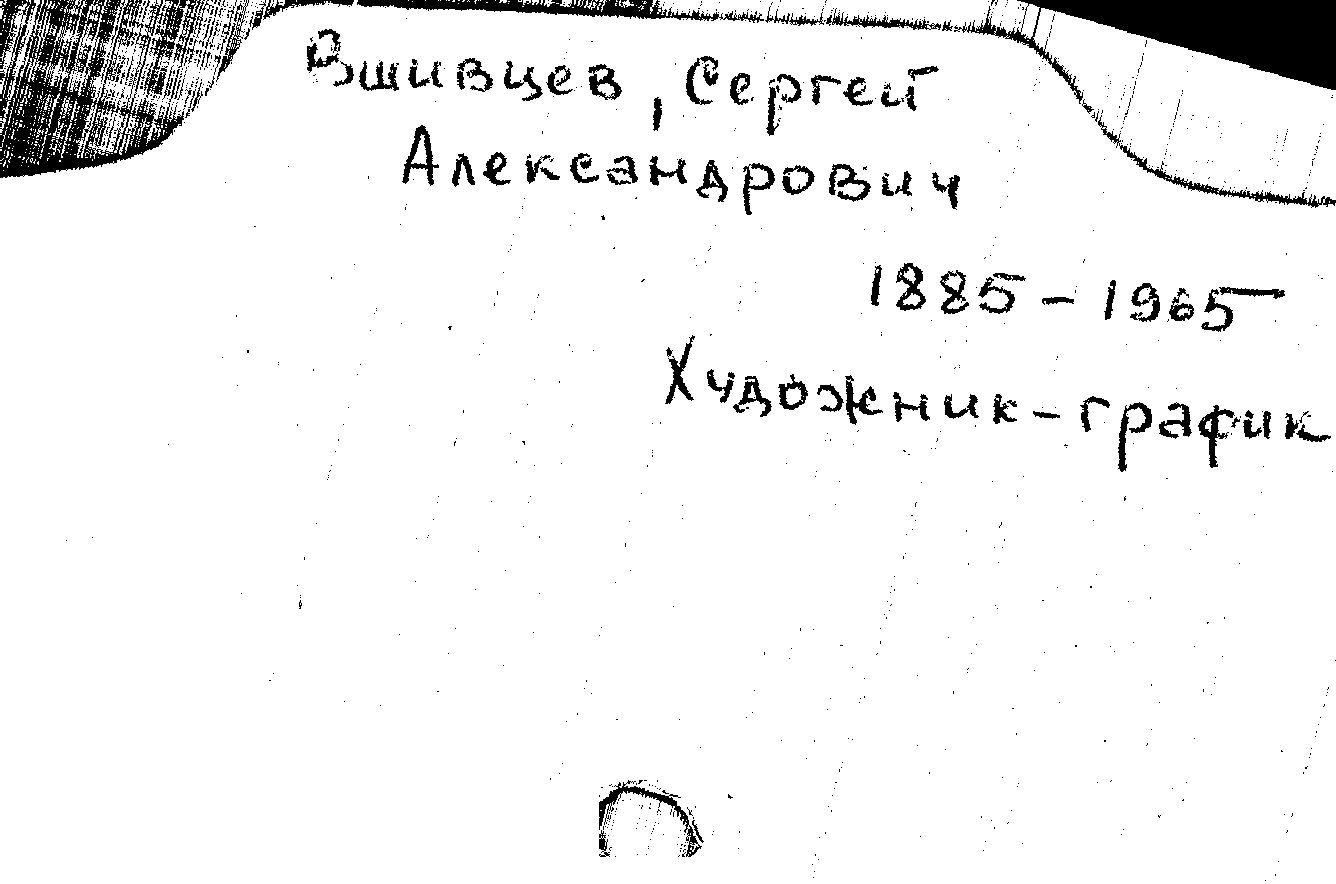 Вшивцев, Сергей
Александрович
1885-1965
Художник-график